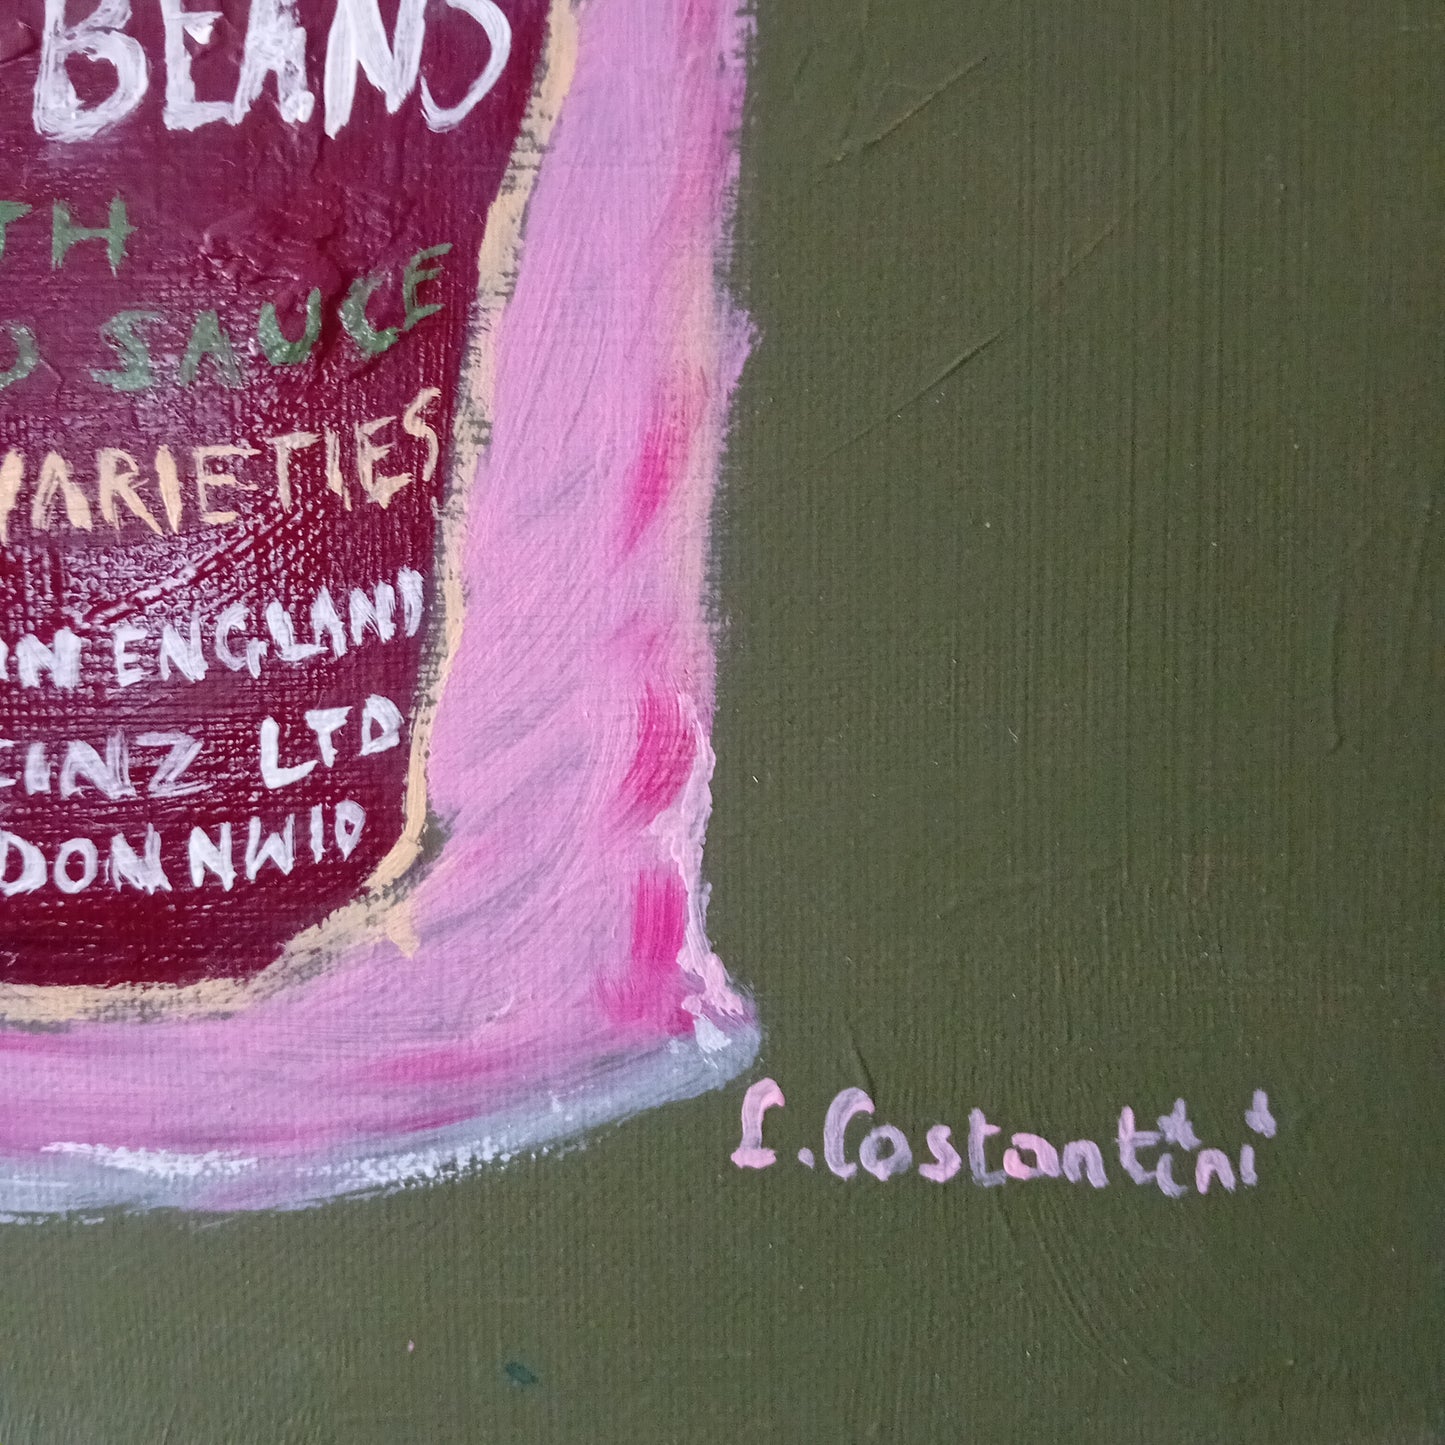 BEANS
TH
O SAUCE
VARIETIES
AN ENGLAND
EINZ LTD
DON NW10
L. Costantini